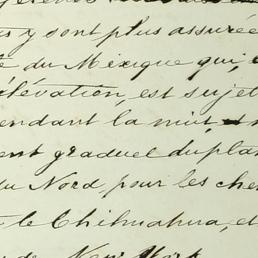 y sont plus assurée
du Mexique qui,
élévation, est sujet
pendant la nuit, et
ent graduel du pla
du Nord, pour les che
le Chihuahua, et
de New York